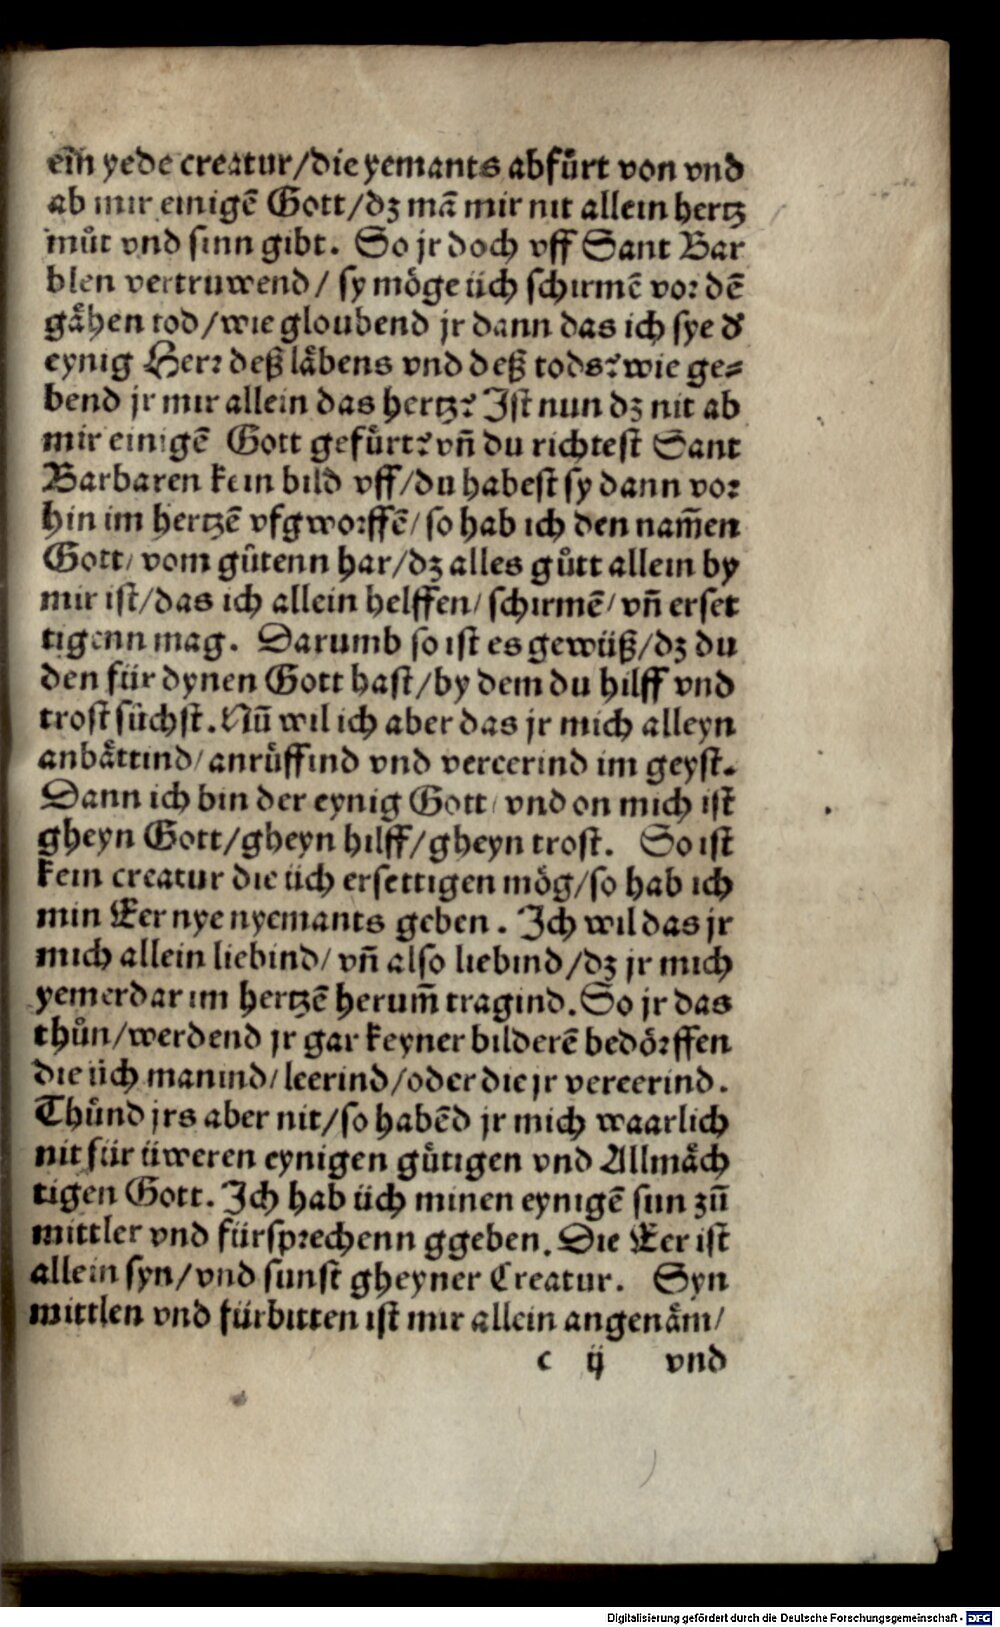 ein yede creatur/die yemants abfuͤrt von vnd
ab mir einigē Gott/dz mā mir nit allein hertz
muͦt vnd sinn gibt. So jr doch vff Sant Bar
blen vertruwend/ sy moͤge üch schirmē vor dē
gaͤhen tod/wie gloubend jr dann das ich sye d'
eynig Herr deß laͤbens vnd deß tods? wie ge⸗
bend jr mir allein das hertz? Ist nun dz nit ab
mir einigē Gott gefuͤrt? vn̄ du richtest Sant
Barbaren kein bild vff/du habest sy dann vor
hin im hertzē vfgworffē/so hab ich den nam̄en
Gott/vom guͦtenn har/dz alles guͦtt allein by
mir ist/das ich allein helffen/ schirmē/vn̄ erset
tigenn mag. Darumb so ist es gewüß/dz du
den für dynen Gott hast/by dem du hilff vnd
trost suͤchst. Nū wil ich aber das jr mich alleyn
anbaͤttind/anruͤffind vnd vereerind im geyst.
Dann ich bin der eynig Gott/vnd on mich ist
gheyn Gott/gheyn hilff/gheyn trost. So ist
kein creatur die üch ersettigen moͤg/so hab ich
min Eer nye nyemants geben. Ich wil das jr
mich allein liebind/vn̄ also liebind/dz jr mich
yemerdar im hertzē herum̄ tragind. So jr das
thuͦn/werdend jr gar keyner bilderē bedoͤrffen
die üch manind/leerind/oder die jr vereerind.
Thuͦnd jrs aber nit/so habēd jr mich waarlich
nit für üweren eynigen guͤtigen vnd Allmaͤch
tigen Gott. Ich hab üch minen eynigē sun zū
mittler vnd fürsprechenn ggeben. Die Eer ist
allein syn/vnd sunst gheyner Creatur. Syn
mittlen vnd fürbitten ist mir allein angenaͤm/
c ij vnd
Digitalisierung gefördert durch die Deutsche Forschungsgemeinschaft - DFG